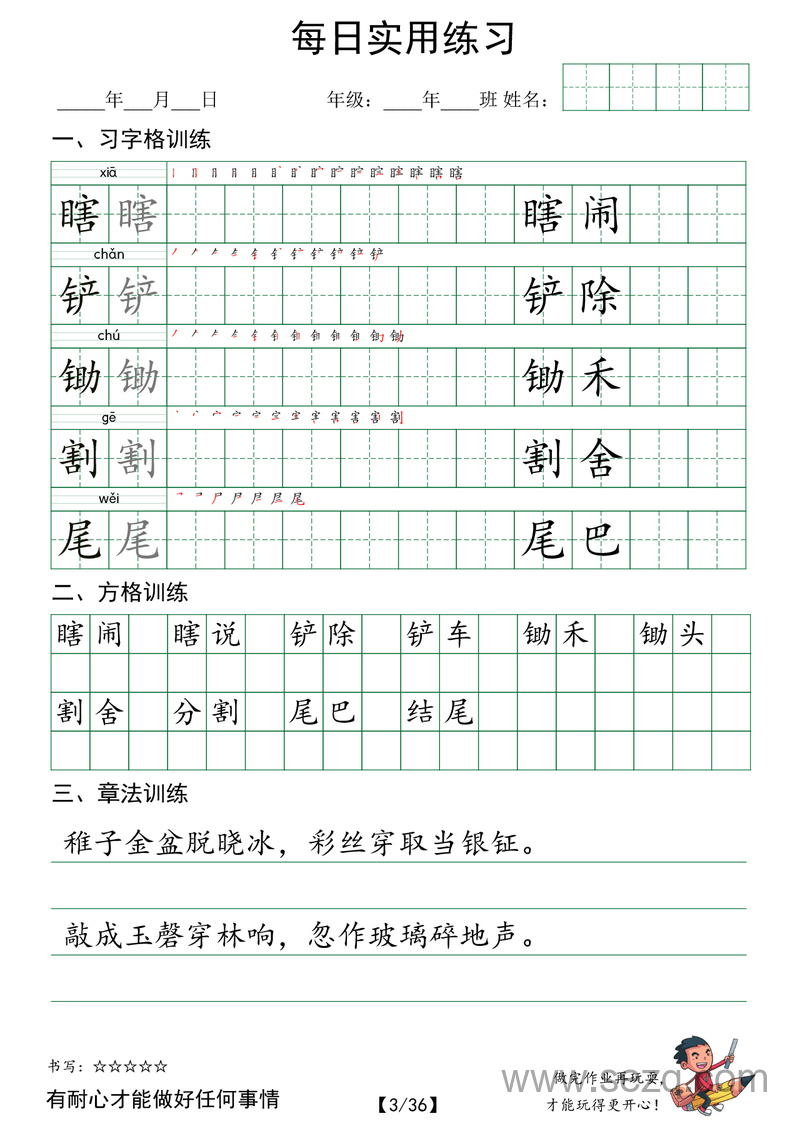 每日实用练习
_____年___月___日 年级：____年____班 姓名：
一、习字格训练
xiā
瞎 瞎 瞎 闹
chǎn
铲 铲 铲 除
chú
锄 锄 锄 禾
gē
割 割 割 舍
wěi
尾 尾 尾 巴
二、方格训练
瞎闹 瞎说 铲除 铲车 锄禾 锄头
割舍 分割 尾巴 结尾
三、章法训练
稚子金盆脱晓冰，彩丝穿取当银钲。
敲成玉磬穿林响，忽作玻璃碎地声。
书写：☆☆☆☆☆
做完作业再玩耍，
有耐心才能做好任何事情
【3/36】
才能玩得更开心！